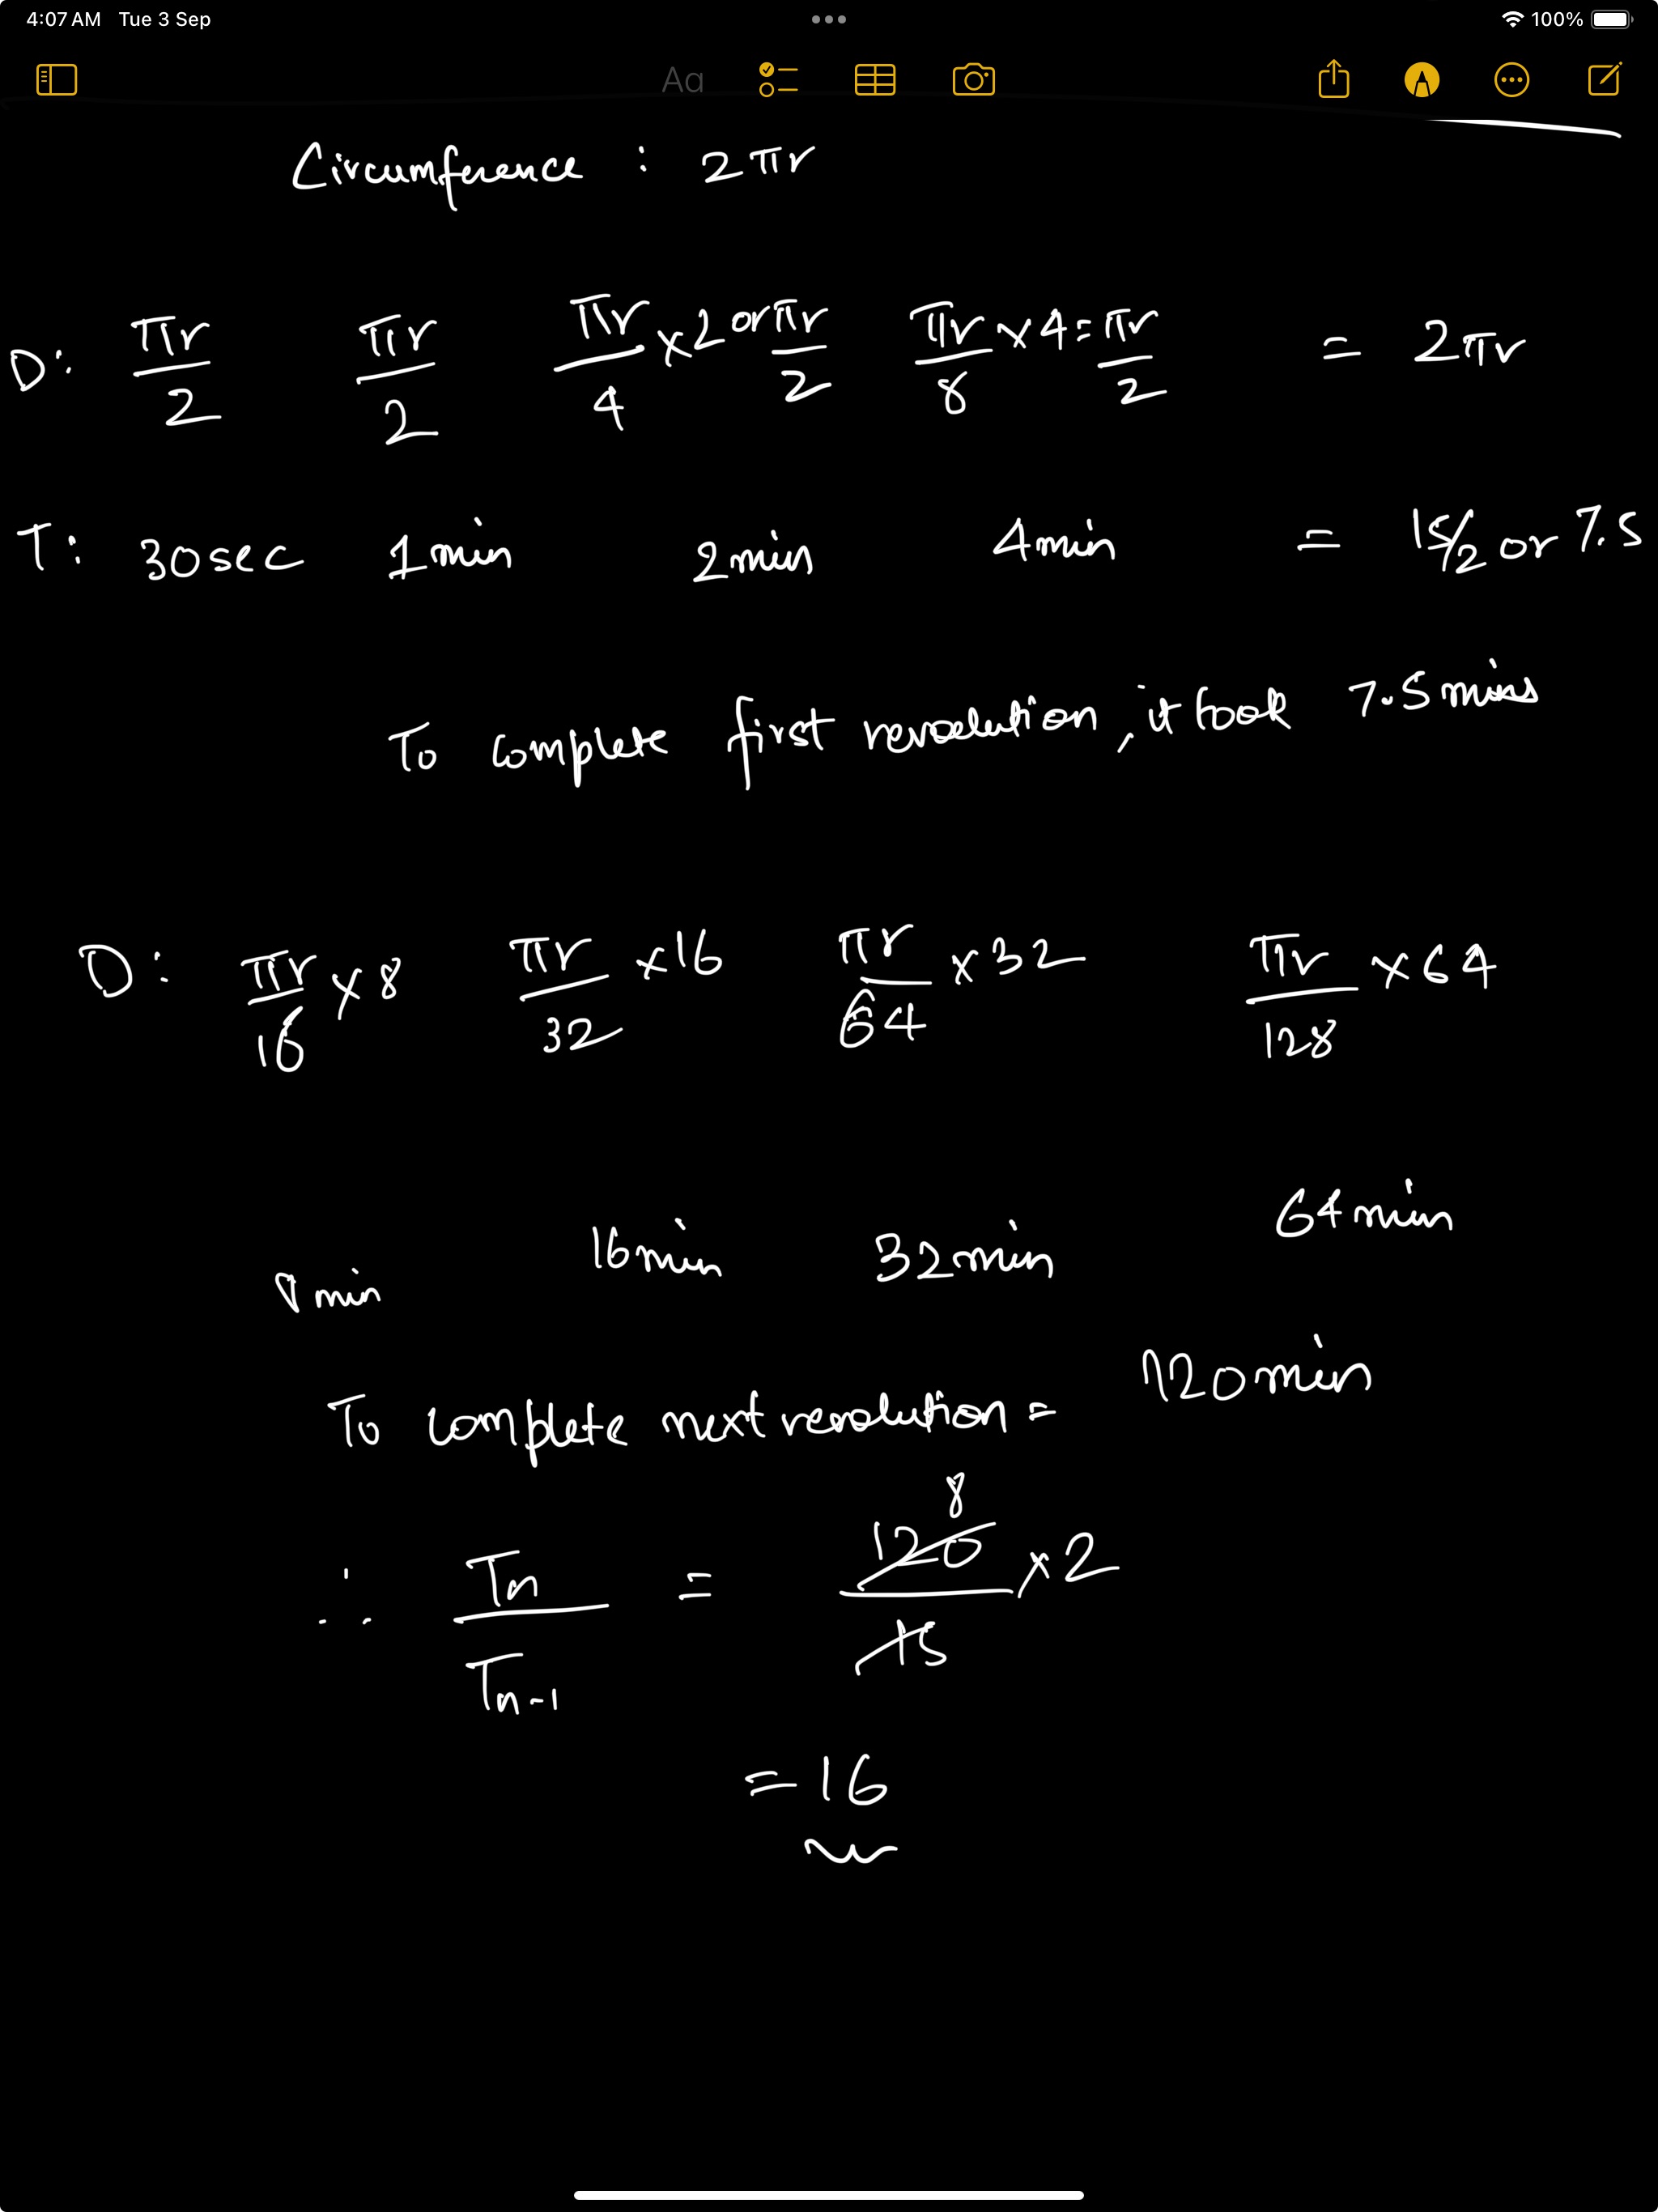 4:07 AM Tue 3 Sep
100%
Aa
Circumference : 2πr
D: πr/2 πr/2 πr/4 x2 or πr/2 πr/8 x4 = πr/2 = 2πr
T: 30sec 1min 2min 4min = 15/2 or 7.5
To complete first revolution, it took 7.5 mins
D: πr/16 x8 πr/32 x16 πr/64 x32 πr/128 x64
8min 16min 32min 64min
To complete next revolution = 120min
∴ Tn/Tn-1 = 120/15 x2
8
=16